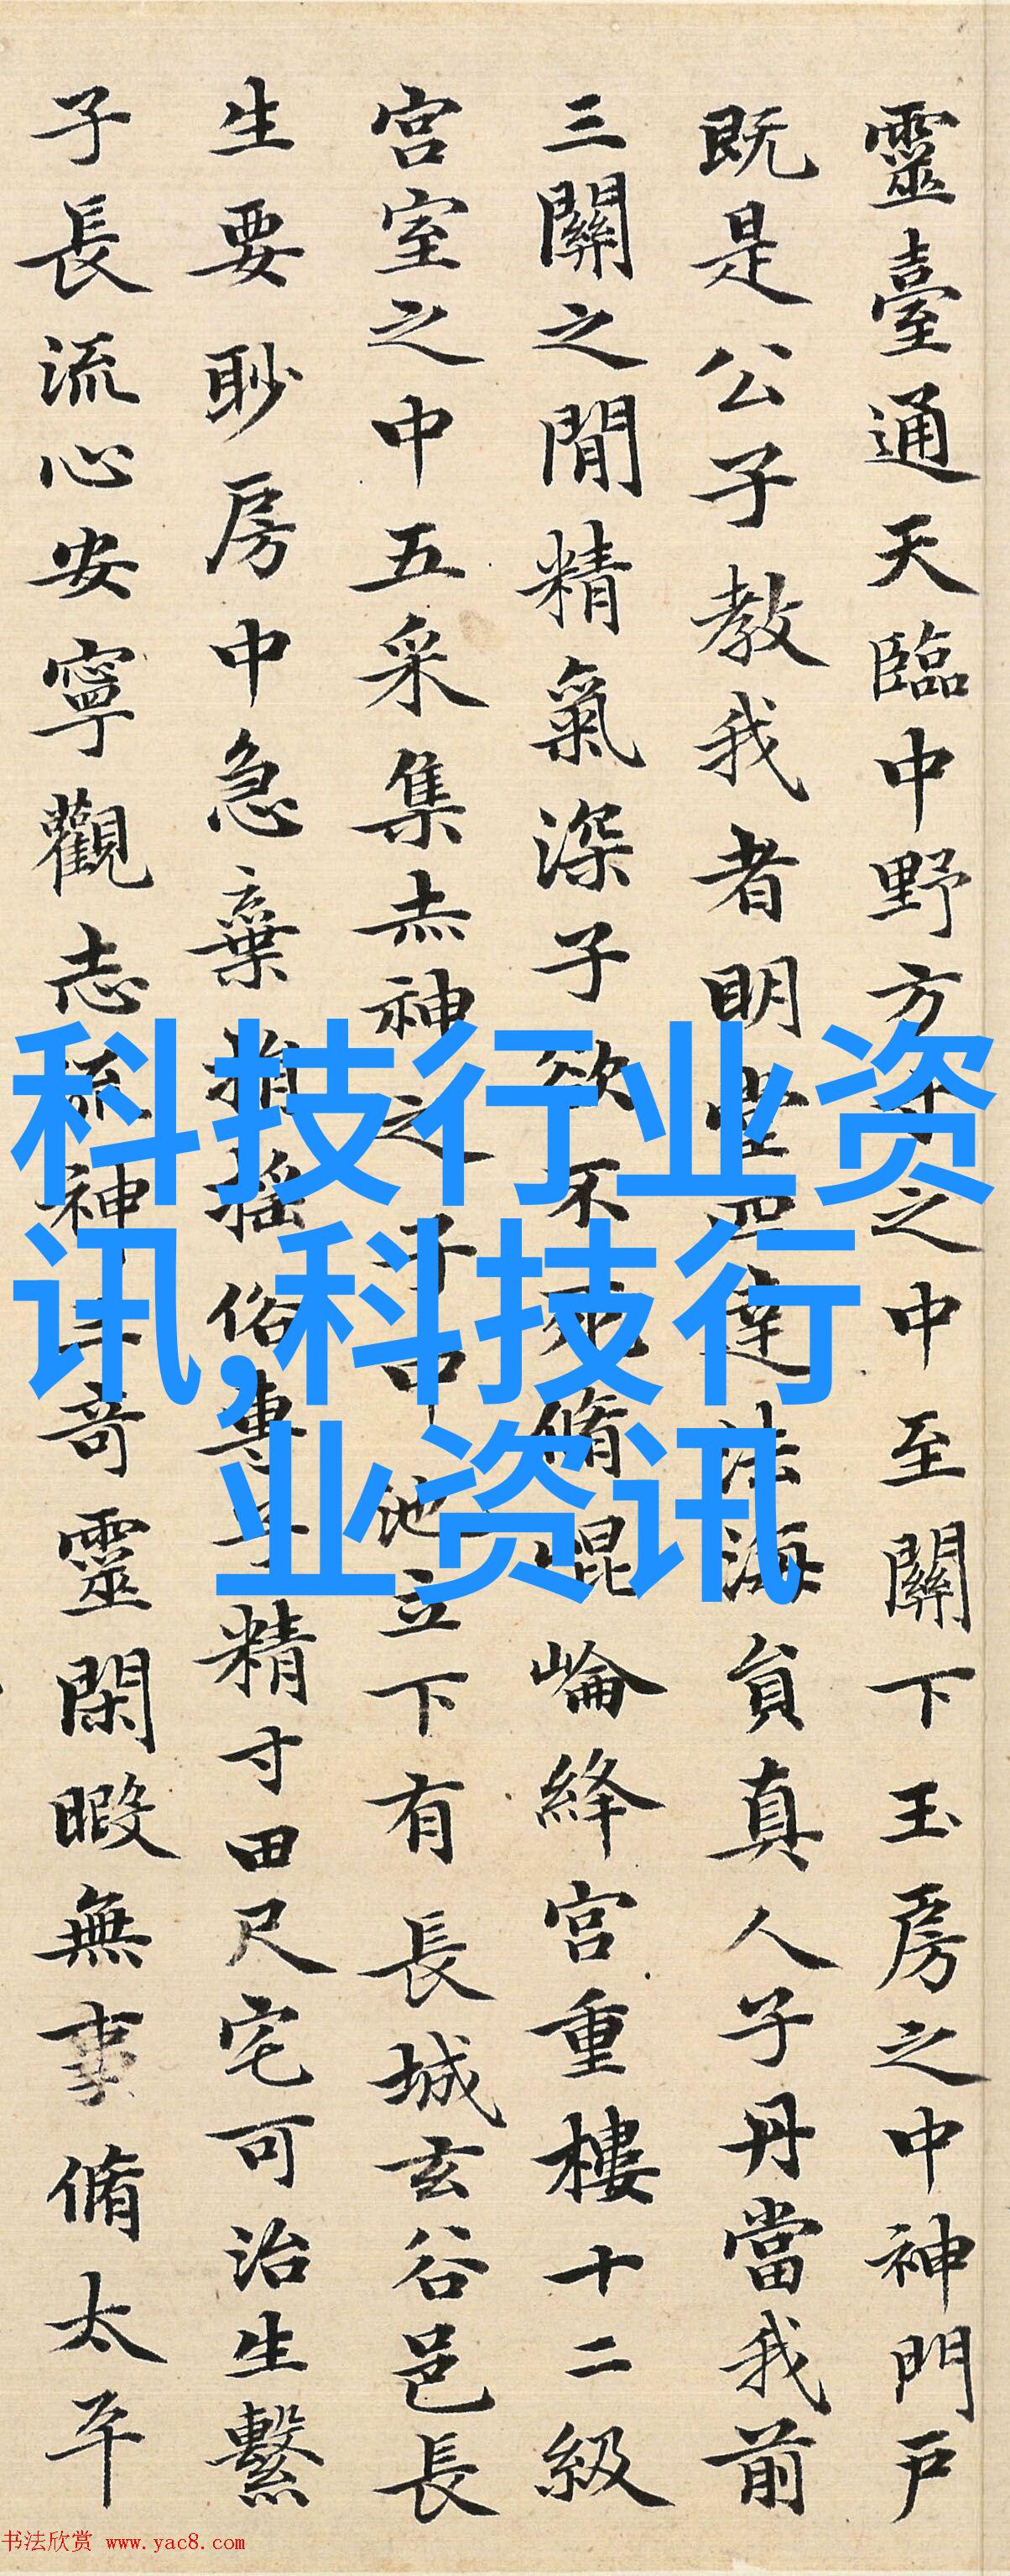 靈臺通天臨中野方寸之中至關下玉房之中神門戶
既是公子教我者明堂四達法海貟真人子丹當我前
三關之閒精氣深子欲不死脩崐崘絳宮重樓十二級
宮室之中五采集赤神之子中池立下有長城玄谷邑長
生要眇房中急棄捐搖俗專子精寸田尺宅可治生繫
子長流心安寧觀志流神三奇靈閑暇無事脩太平
科技行业资
讯,科技行
业资讯
书法欣赏 www.yac8.com